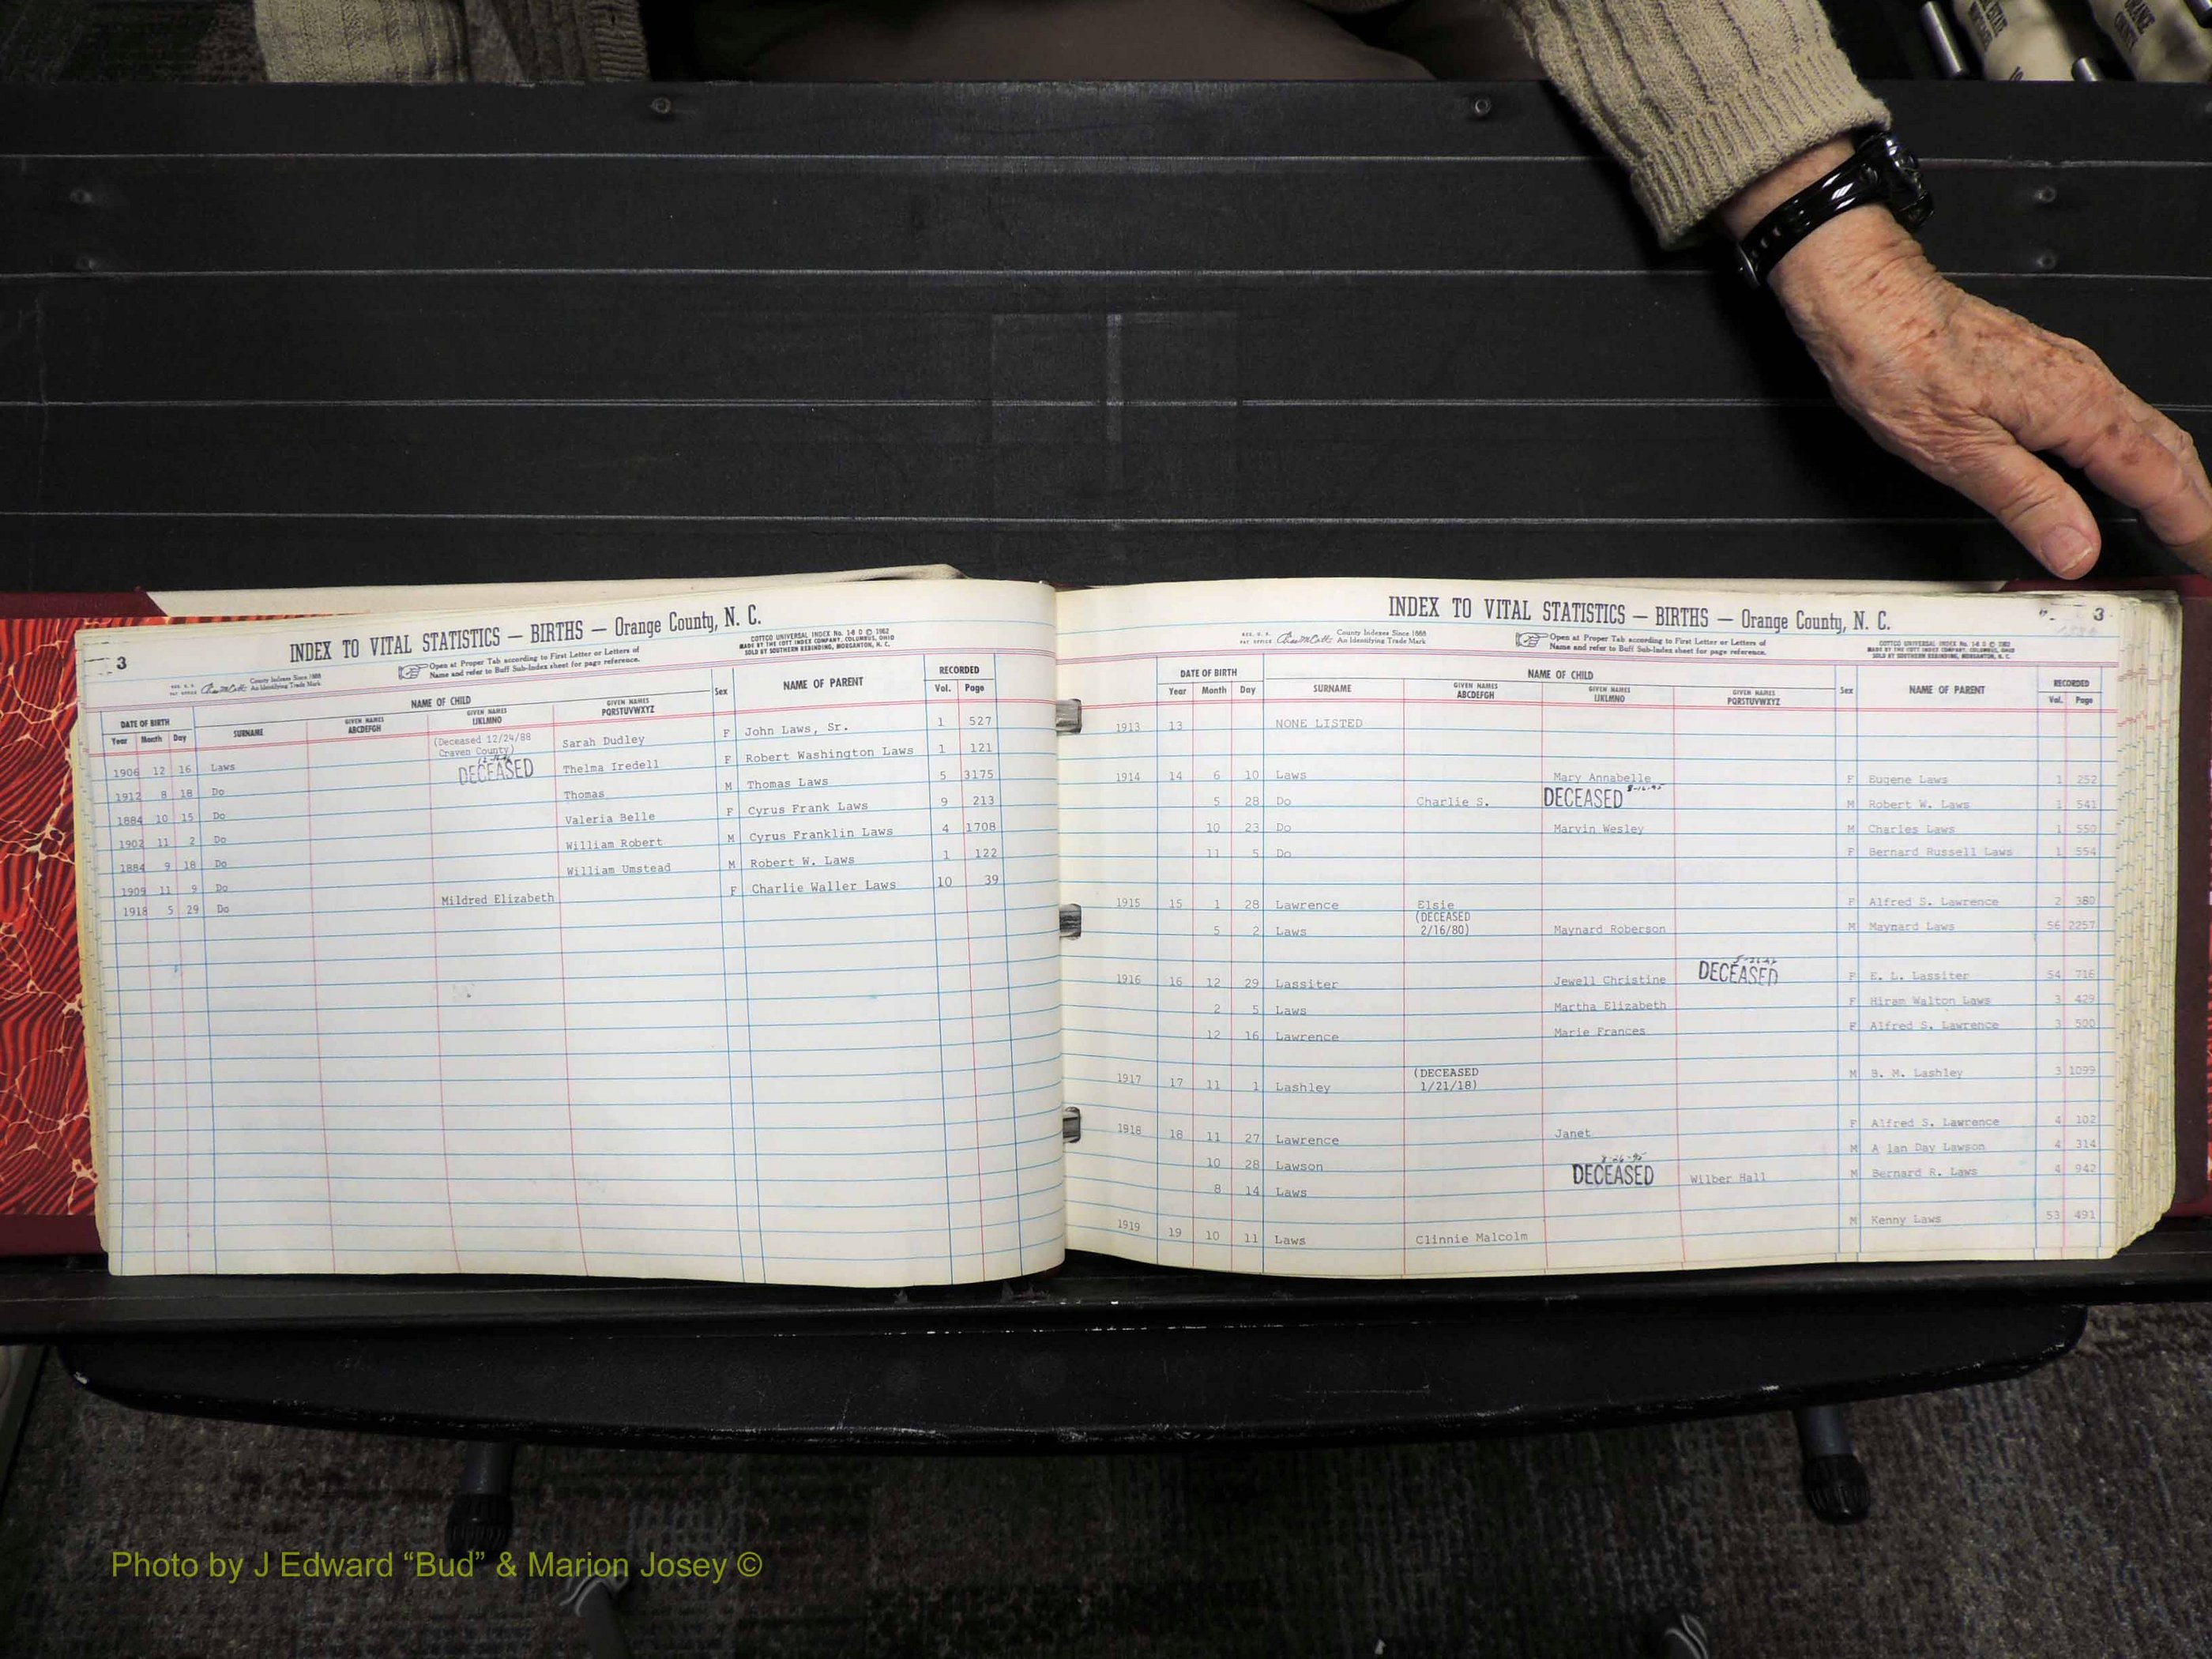 3
INDEX TO VITAL STATISTICS — BIRTHS — Orange County, N. C.
COTTCO UNIVERSAL INDEX No. 1-8 D © 1962
MADE BY THE COTT INDEX COMPANY, COLUMBUS, OHIO
SOLD BY SOUTHERN REBINDING, MORGANTON, N. C.
County Indexes Since 1888
An Identifying Trade Mark
Open at Proper Tab according to First Letter or Letters of
Name and refer to Buff Sub-Index sheet for page reference.
DATE OF BIRTH NAME OF CHILD Sex NAME OF PARENT RECORDED
Year Month Day SURNAME GIVEN NAMES ABCDEFGH GIVEN NAMES IJKLMNO GIVEN NAMES PQRSTUVWXYZ Vol. Page
1906 12 16 Laws (Deceased 12/24/88 Craven County) Sarah Dudley F John Laws, Sr. 1 527
1912 8 18 Do DECEASED Thelma Iredell F Robert Washington Laws 1 121
1884 10 15 Do Thomas M Thomas Laws 5 3175
1902 11 2 Do Valeria Belle F Cyrus Frank Laws 9 213
1884 9 18 Do William Robert M Cyrus Franklin Laws 4 1708
1909 11 9 Do William Umstead M Robert W. Laws 1 122
1918 5 29 Do Mildred Elizabeth F Charlie Waller Laws 10 39
INDEX TO VITAL STATISTICS — BIRTHS — Orange County, N. C.
3
County Indexes Since 1888
An Identifying Trade Mark
Open at Proper Tab according to First Letter or Letters of
Name and refer to Buff Sub-Index sheet for page reference.
COTTCO UNIVERSAL INDEX No. 1-8 D © 1962
MADE BY THE COTT INDEX COMPANY, COLUMBUS, OHIO
SOLD BY SOUTHERN REBINDING, MORGANTON, N. C.
DATE OF BIRTH NAME OF CHILD Sex NAME OF PARENT RECORDED
Year Month Day SURNAME GIVEN NAMES ABCDEFGH GIVEN NAMES IJKLMNO GIVEN NAMES PQRSTUVWXYZ Vol. Page
1913 13 NONE LISTED
1914 14 6 10 Laws Mary Annabelle F Eugene Laws 1 252
5 28 Do Charlie S. DECEASED 8-16-95 M Robert W. Laws 1 541
10 23 Do Marvin Wesley M Charles Laws 1 550
11 5 Do F Bernard Russell Laws 1 554
1915 15 1 28 Lawrence Elsie F Alfred S. Lawrence 2 380
5 2 Laws (DECEASED 2/16/80) Maynard Roberson M Maynard Laws 56 2257
1916 16 12 29 Lassiter Jewell Christine DECEASED F E. L. Lassiter 54 716
2 5 Laws Martha Elizabeth F Hiram Walton Laws 3 429
12 16 Lawrence Marie Frances F Alfred S. Lawrence 3 500
1917 17 11 1 Lashley (DECEASED 1/21/18) M S. M. Lashley 3 1099
1918 18 11 27 Lawrence Janet F Alfred S. Lawrence 4 102
10 28 Lawson M A lan Day Lawson 4 314
8 14 Laws DECEASED 8-26-95 Wilber Hall M Bernard R. Laws 4 942
1919 19 10 11 Laws Clinnie Malcolm M Kenny Laws 53 491
Photo by J Edward “Bud” & Marion Josey ©